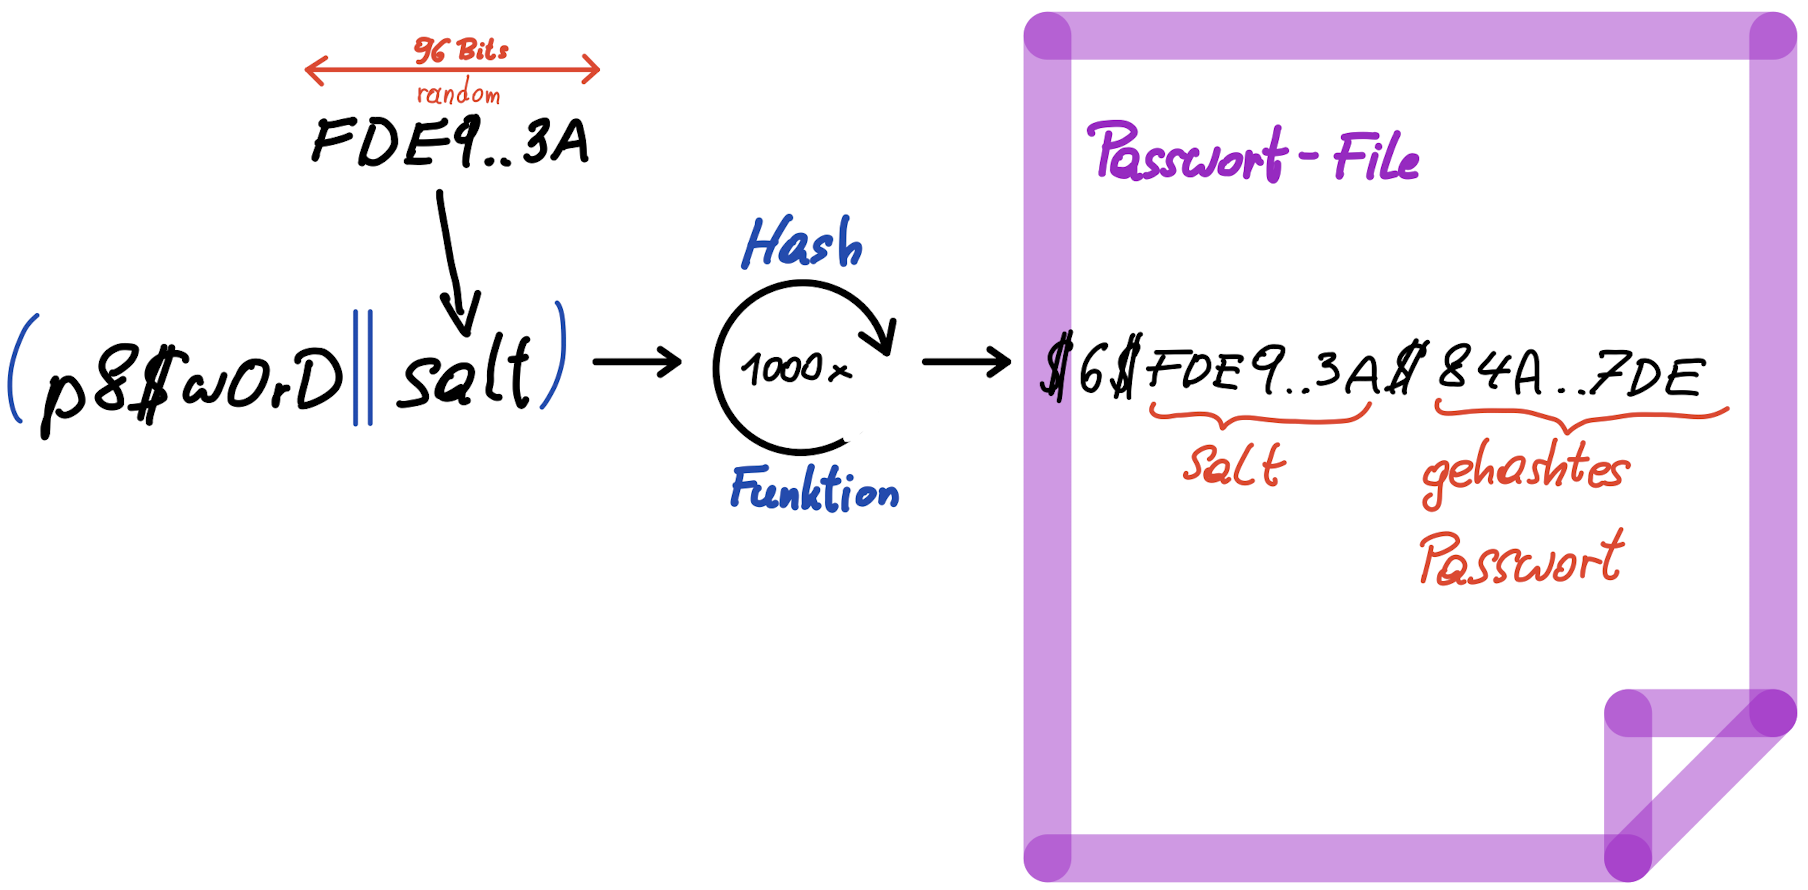 96 Bits
random
FDE9..3A
(p8$w0rD || salt)
Hash
1000x
Funktion
Passwort-File
$6$FDE9..3A$84A..7DE
salt
gehashtes
Passwort